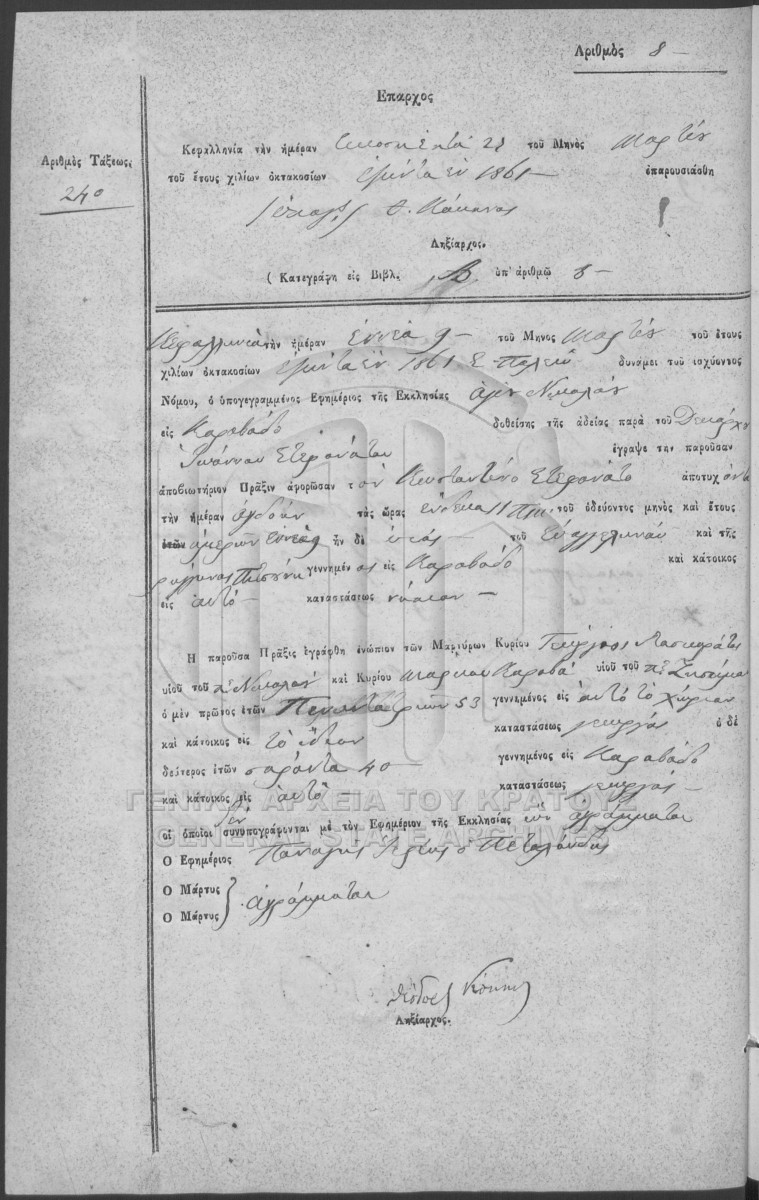 Αριθμὸς 8 —
Επαρχος
Αριθμὸς Τάξεως,
240
Κεφαλληνία τὴν ἡμέραν τοῦ Μηνὸς Μαρτίου
τοῦ ἔτους χιλίων ὀκτακοσίων ἑξῆντα ἓν 1861 — ἐπαρουσιάσθη
Ληξίαρχος.
( Κατεγράφη εἰς Βιβλ. Β ὑπ' ἀριθμῷ 8 —
Κεφαλληνία τὴν ἡμέραν ἐννέα 9 — τοῦ Μηνος Μαρτίου τοῦ ἔτους
χιλίων ὀκτακοσίων ἑξῆντα ἓν 1861 δυνάμει τοῦ ἰσχύοντος
Νόμου, ὁ ὑπογεγραμμένος Εφημέριος τῆς Εκκλησίας ἁγίου Νικολάου
εἰς Καραβάδο δοθείσης τῆς ἀδείας παρὰ τοῦ Δεκάρχου
Ἰωάννου Στεφανάτου ἔγραψε την παροῦσαν
ἀποβιωτήριον Πρᾶξιν ἀφορῶσαν τὸν Κωσταντῖνο Στεφανάτο ἀποτυχόντα
τὴν ἡμέραν ὀγδόην τὰς ὥρας ἕνδεκα 11 τοῦ ὁδεύοντος μηνὸς καὶ ἔτους
ἐτῶν ἡμερῶν ἐννέα 9 ἦν δὲ υἱός τοῦ Εὐαγγελινοῦ καὶ τῆς
γεννημένος εἰς Καραβάδο καὶ κάτοικος
εἰς αὐτό — καταστάσεως νήπιον —
Η παροῦσα Πρᾶξις ἐγράφθη ἐνώπιον τῶν Μαρτύρων Κυρίου Γεώργιος Λασκαράτος
υἱοῦ τοῦ πῈ Νικολάου καὶ Κυρίου Μαρίνου Καραβά υἱοῦ τοῦ
ὁ μὲν πρῶτος ἐτῶν Πενηντατριῶν 53 γεννημένος εἰς αὐτό τό χωρίον
καὶ κάτοικος εἰς τὸ ἴδιον καταστάσεως γεωργός ὁ δὲ
δεύτερος ἐτῶν σαράντα 40 — γεννημένος εἰς Καραβάδο
καὶ κάτοικος εἰς αὐτό καταστάσεως γεωργός —
οἱ ὁποῖοι δέν συνυπογράφονται μὲ τὸν Εφημέριον τῆς Εκκλησίας ἀγράμματοι
Ο Εφημέριος Παναγῆς
Ο Μάρτυς
Ο Μάρτυς } ἀγράμματοι
Ληξίαρχος.
ΓΕΝΙΚΑ ΑΡΧΕΙΑ ΤΟΥ ΚΡΑΤΟΥΣ
GENERAL STATE ARCHIVES